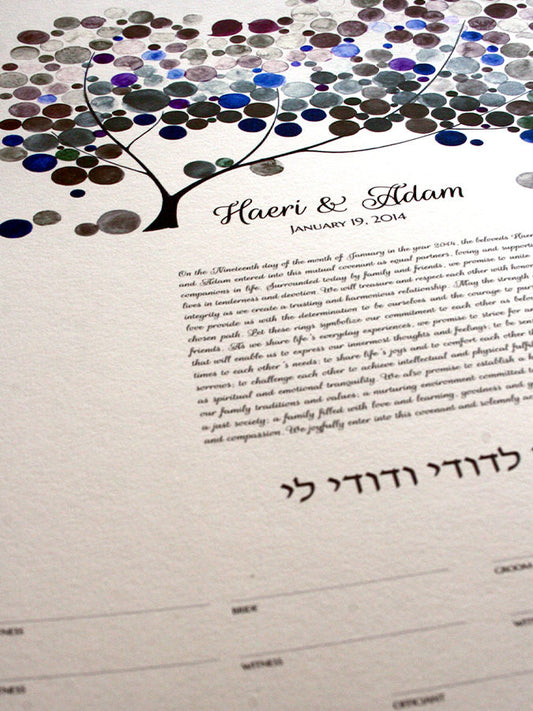 Haeri & Adam
January 19, 2014
On the Nineteenth day of the month of January in the year 2014, the beloveds Haer
and Adam entered into this mutual covenant as equal partners, loving and supporti
companions in life. Surrounded today by family and friends, we promise to unite
lives in tenderness and devotion. We will treasure and respect each other with honor
integrity as we create a trusting and harmonious relationship. May the strength
love provide us with the determination to be ourselves and the courage to pur
chosen path. Let these rings symbolize our commitment to each other as belo
friends. As we share life's everyday experiences, we promise to strive for an
that will enable us to express our innermost thoughts and feelings; to be sens
times to each other's needs; to share life's joys and to comfort each other th
sorrows; to challenge each other to achieve intellectual and physical fulfil
as spiritual and emotional tranquility. We also promise to establish a h
our family traditions and values; a nurturing environment committed t
a just society; a family filled with love and learning, goodness and g
and compassion. We joyfully enter into this covenant and solemnly ac
לדודי ודודי לי
GROOM
BRIDE
NESS
WIT
WITNESS
NESS
OFFICIANT